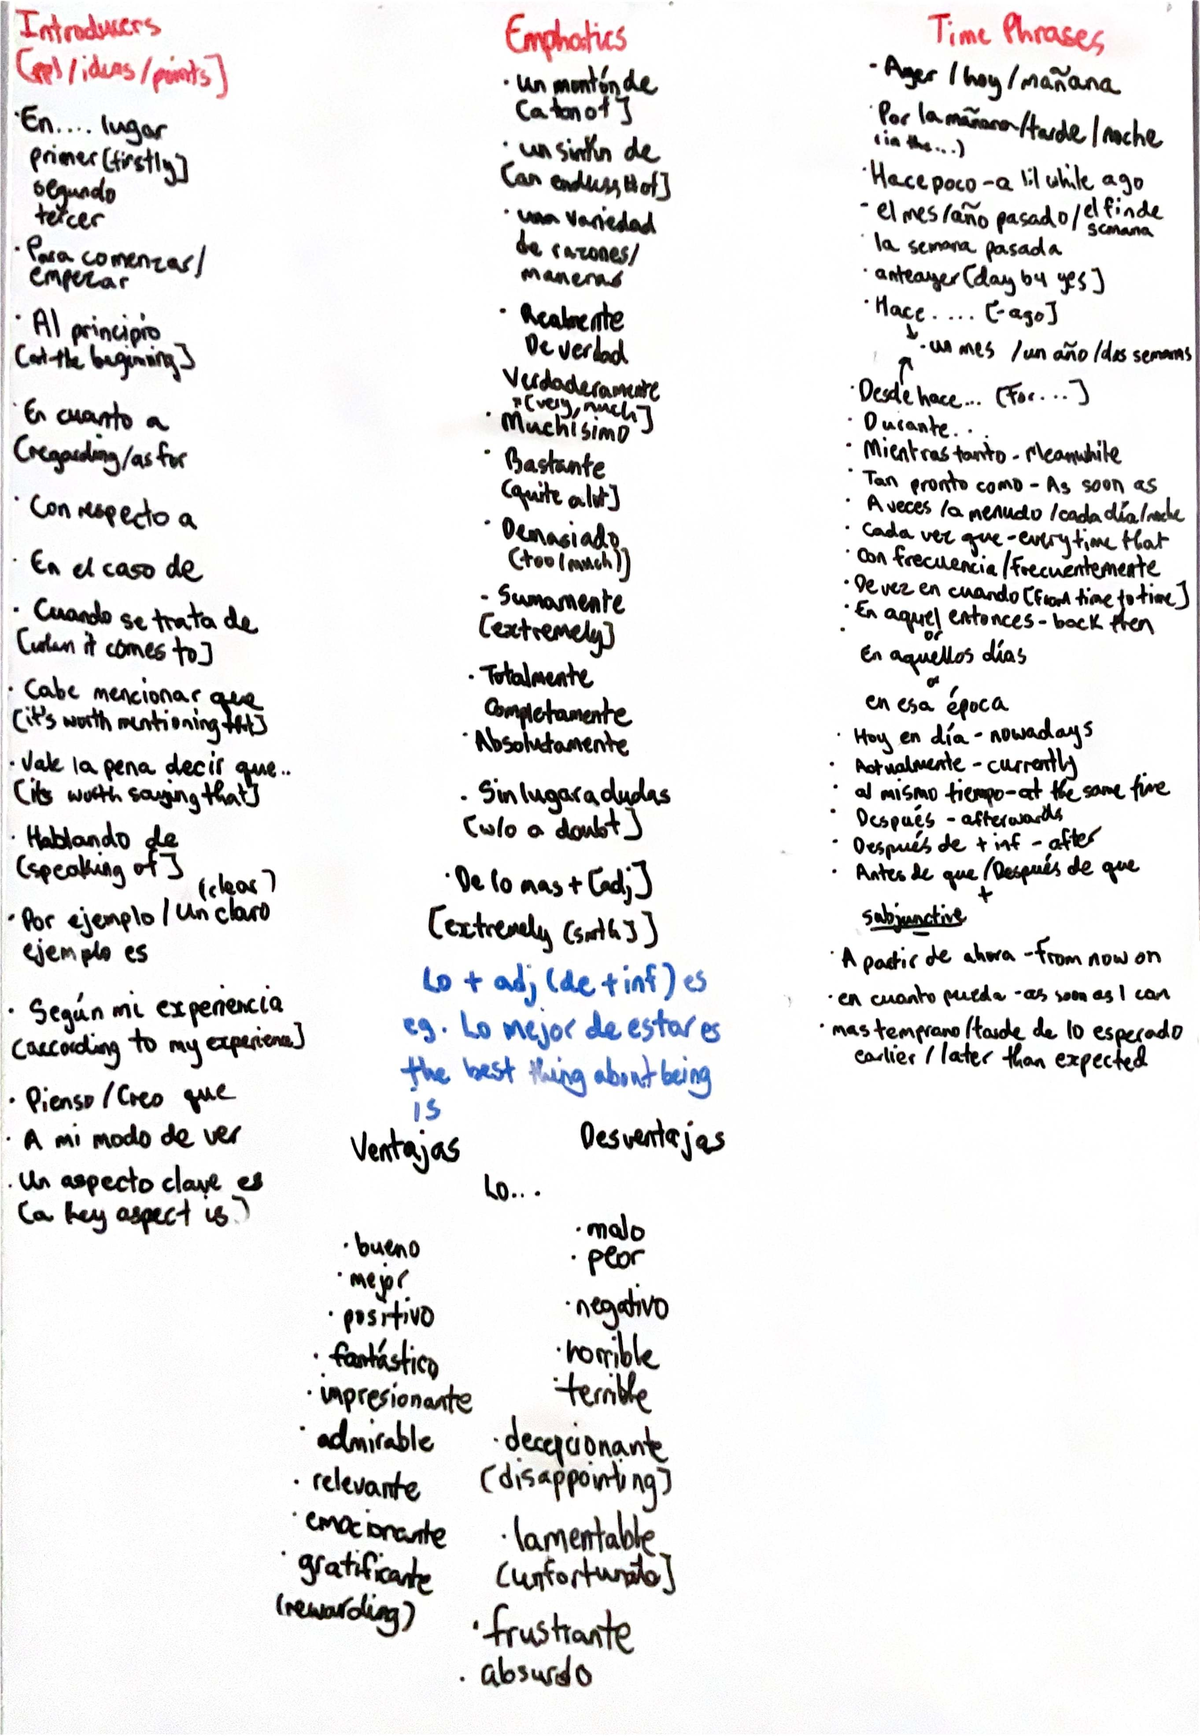 Introducers
[ppl/ideas/points]
·En.... lugar
primer [firstly]
segundo
tercer
·Para comenzar/
empezar
·Al principio
[at the beginning]
·En cuanto a
[regarding/as for
·Con respecto a
·En el caso de
·Cuando se trata de
[when it comes to]
·Cabe mencionar que
[it's worth mentioning tht]
·Vale la pena decir que..
[its worth saying that]
·Hablando de
[speaking of]
(clear)
·Por ejemplo / Un claro
ejemplo es
·Según mi experiencia
[according to my experience]
·Pienso/Creo que
·A mi modo de ver
·Un aspecto clave es
[a key aspect is]
Emphatics
·un montón de
[a ton of]
·un sinfín de
[an endless # of]
·una variedad
de razones/
maneras
·Realmente
De verdad
Verdaderamente
[very, much]
·Muchísimo
·Bastante
[quite a lot]
·Demasiado
(too(much))
-Sumamente
[extremely]
·Totalmente
Completamente
·Absolutamente
·Sin lugar a dudas
[w/o a doubt]
·De lo mas + [adj]
[extremely (smth)]
Lo + adj (de + inf) es
eg. Lo mejor de estar es
the best thing about being
is
Ventajas
Desventajas
Lo...
·bueno
·mejor
·positivo
·fantástico
·impresionante
·admirable
·relevante
·emocionante
·gratificante
(rewarding)
·malo
·peor
·negativo
·horrible
·terrible
·decepcionante
(disappointing)
·lamentable
[unfortunate]
·frustrante
·absurdo
Time Phrases
-Ayer / hoy / mañana
·Por la mañana/tarde/noche
(in the...)
·Hace poco - a lil while ago
-el mes/año pasado/el finde
semana
la semana pasada
·anteayer [day b4 yes]
·Hace.... [-ago]
·un mes / un año / dos semanas
·Desde hace... [For...]
·Durante..
·Mientras tanto - Meanwhile
·Tan pronto como - As soon as
·A veces /a menudo /cada día/noche
·Cada vez que - everytime that
·Con frecuencia/Frecuentemente
·De vez en cuando [from time to time]
·En aquel entonces - back then
or
En aquellos días
or
en esa época
·Hoy en día - nowadays
·Actualmente - currently
·al mismo tiempo - at the same time
·Después - afterwards
·Después de + inf - after
·Antes de que/Después de que
+
subjunctive
·A partir de ahora - from now on
·en cuanto pueda - as soon as I can
·mas temprano/tarde de lo esperado
earlier / later than expected